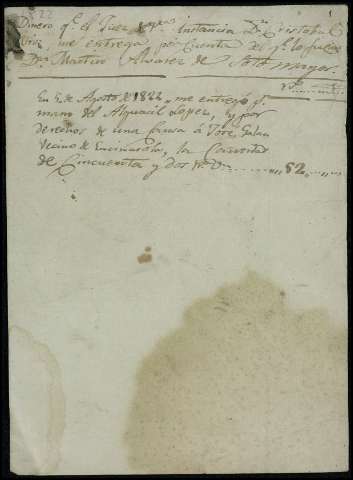 1822
Dinero q.e el Juez de 1.a Instancia D.n Cristobal
me entrega por cuenta del q.e
D.n Martin Alvarez de Sotomayor.
En 2 de Agosto de 1822, me entregó p.r
mano del Alguacil Lopez, y por
derechos de una causa á José Galan
Vecino de Encinasola, la Cantidad
de Cincuenta y dos r.s v.n 52